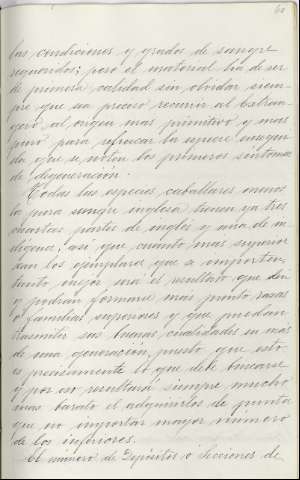 60
las condiciones y grados de sangre
requeridos; pero el material ha de ser
de primera calidad sin olvidar siem-
pre que sea preciso recurrir al Extran-
gero al origen mas primitivo y mas
puro para refrescar la especie enseguí-
da que se noten los primeros síntomas
de degeneracion.
Todas las especies caballares menos
la pura sangre inglesa tienen ya tres
cuartas partes de inglés y una de in-
dígena, así que cuanto mas superior
sean los ejemplares que se importen,
tanto mejor será el resultado que den
y podrán formarse mas pronto razas
y familias superiores y que puedan
trasmitir sus buenas cualidades en mas
de una generacion, puesto que esto
es precisamente lo que debe buscarse
y por eso resultará siempre mucho
mas barato el adquirirlos de punta
que no importar mayor número
de los inferiores.
El número de Depósitos ó Secciones de